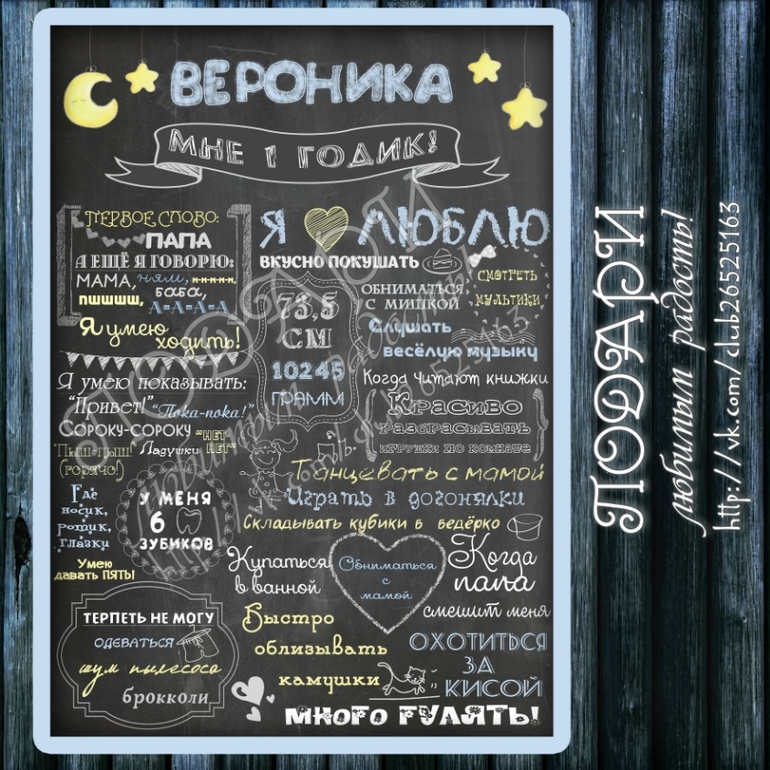 ВЕРОНИКА
МНЕ 1 ГОДИК!
ПЕРВОЕ СЛОВО:
ПАПА
А ЕЩЁ Я ГОВОРЮ:
МАМА, ням, н-н-н-н,
пшшшш, баба,
А-А-А-А
Я умею
ходить!
Я умею показывать:
"Привет!" "Пока-пока!"
СОРОКУ-СОРОКУ "НЕТ
Пыш-пыш! Ладушки НЕТ"
(горячо!)
Где
носик,
ротик,
глазки
Умею
давать ПЯТЬ!
У МЕНЯ
6
ЗУБИКОВ
ТЕРПЕТЬ НЕ МОГУ
ОДЕВАТЬСЯ
шум пылесоса
брокколи
73,5
СМ
10245
ГРАММ
Я ЛЮБЛЮ
ВКУСНО ПОКУШАТЬ
СМОТРЕТЬ
МУЛЬТИКИ
ОБНИМАТЬСЯ
С МИШКОЙ
Слушать
весёлую музыку
Когда читают книжки
Красиво
разбрасывать
игрушки по комнате
Танцевать с мамой
Играть в догонялки
Складывать кубики в ведёрко
Купаться
в ванной
Обниматься
с
мамой
Когда
папа
смешит меня
Быстро
облизывать
камушки
ОХОТИТЬСЯ
ЗА
КИСОЙ
МНОГО ГУЛЯТЬ!
ПОДАРИ
любимым радость!
http://vk.com/club26525163